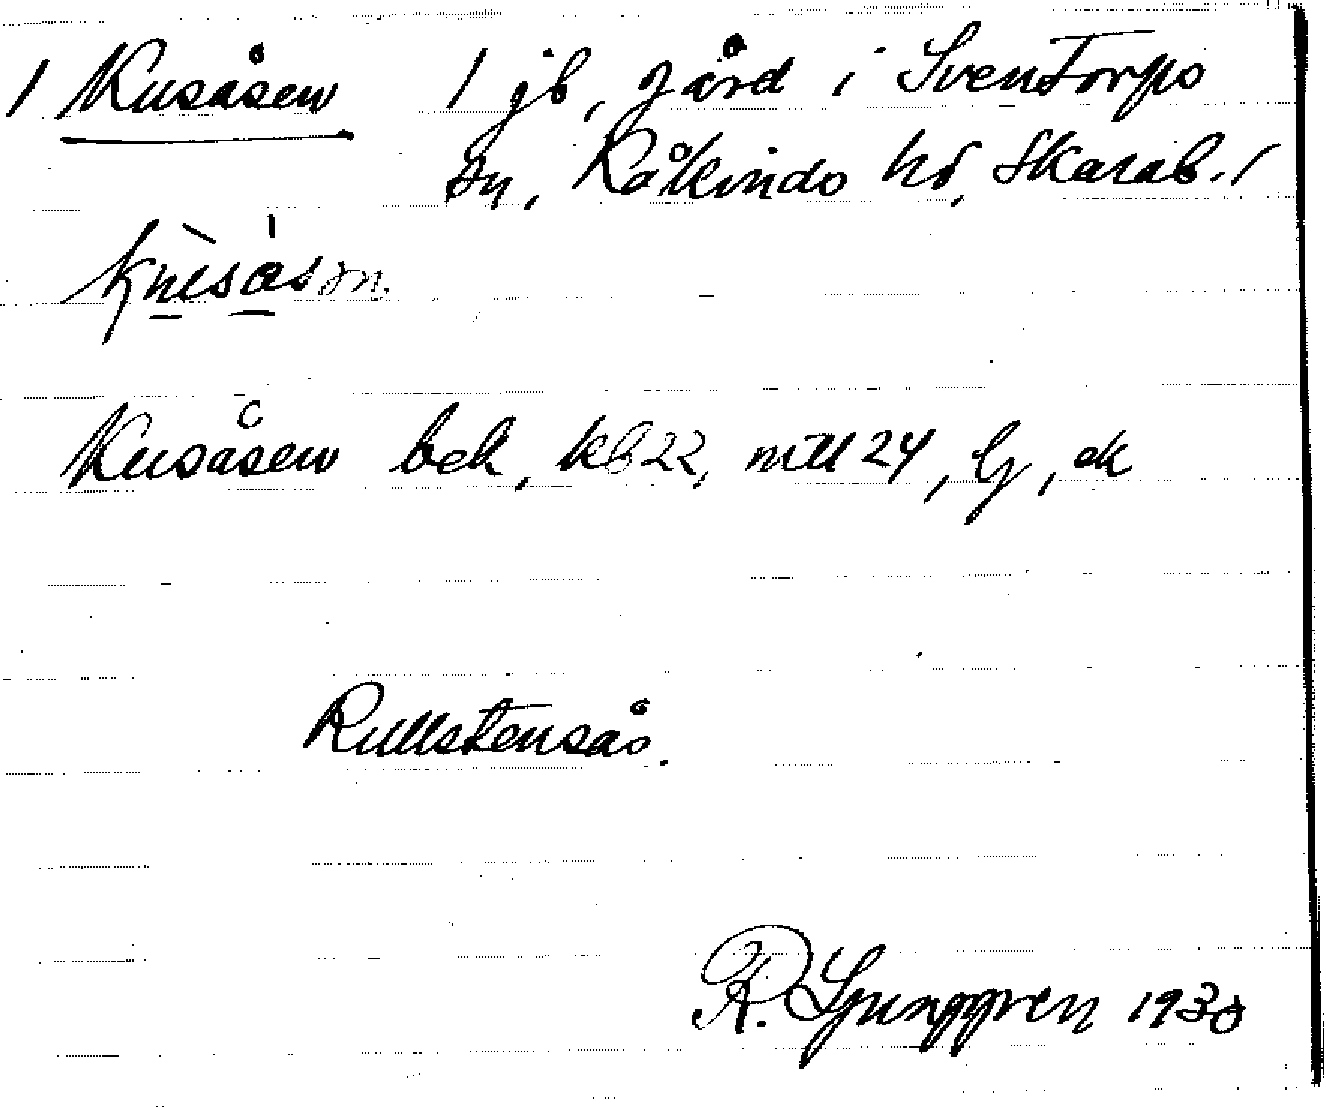 / Kusåsen / jb, gård i Sventorps
sn, Kåkinds hd, Skarab. /
Kusåsen bek, kb 22, mtl 24, lj, ek
Rullstensås.
K. Ljunggren 1930